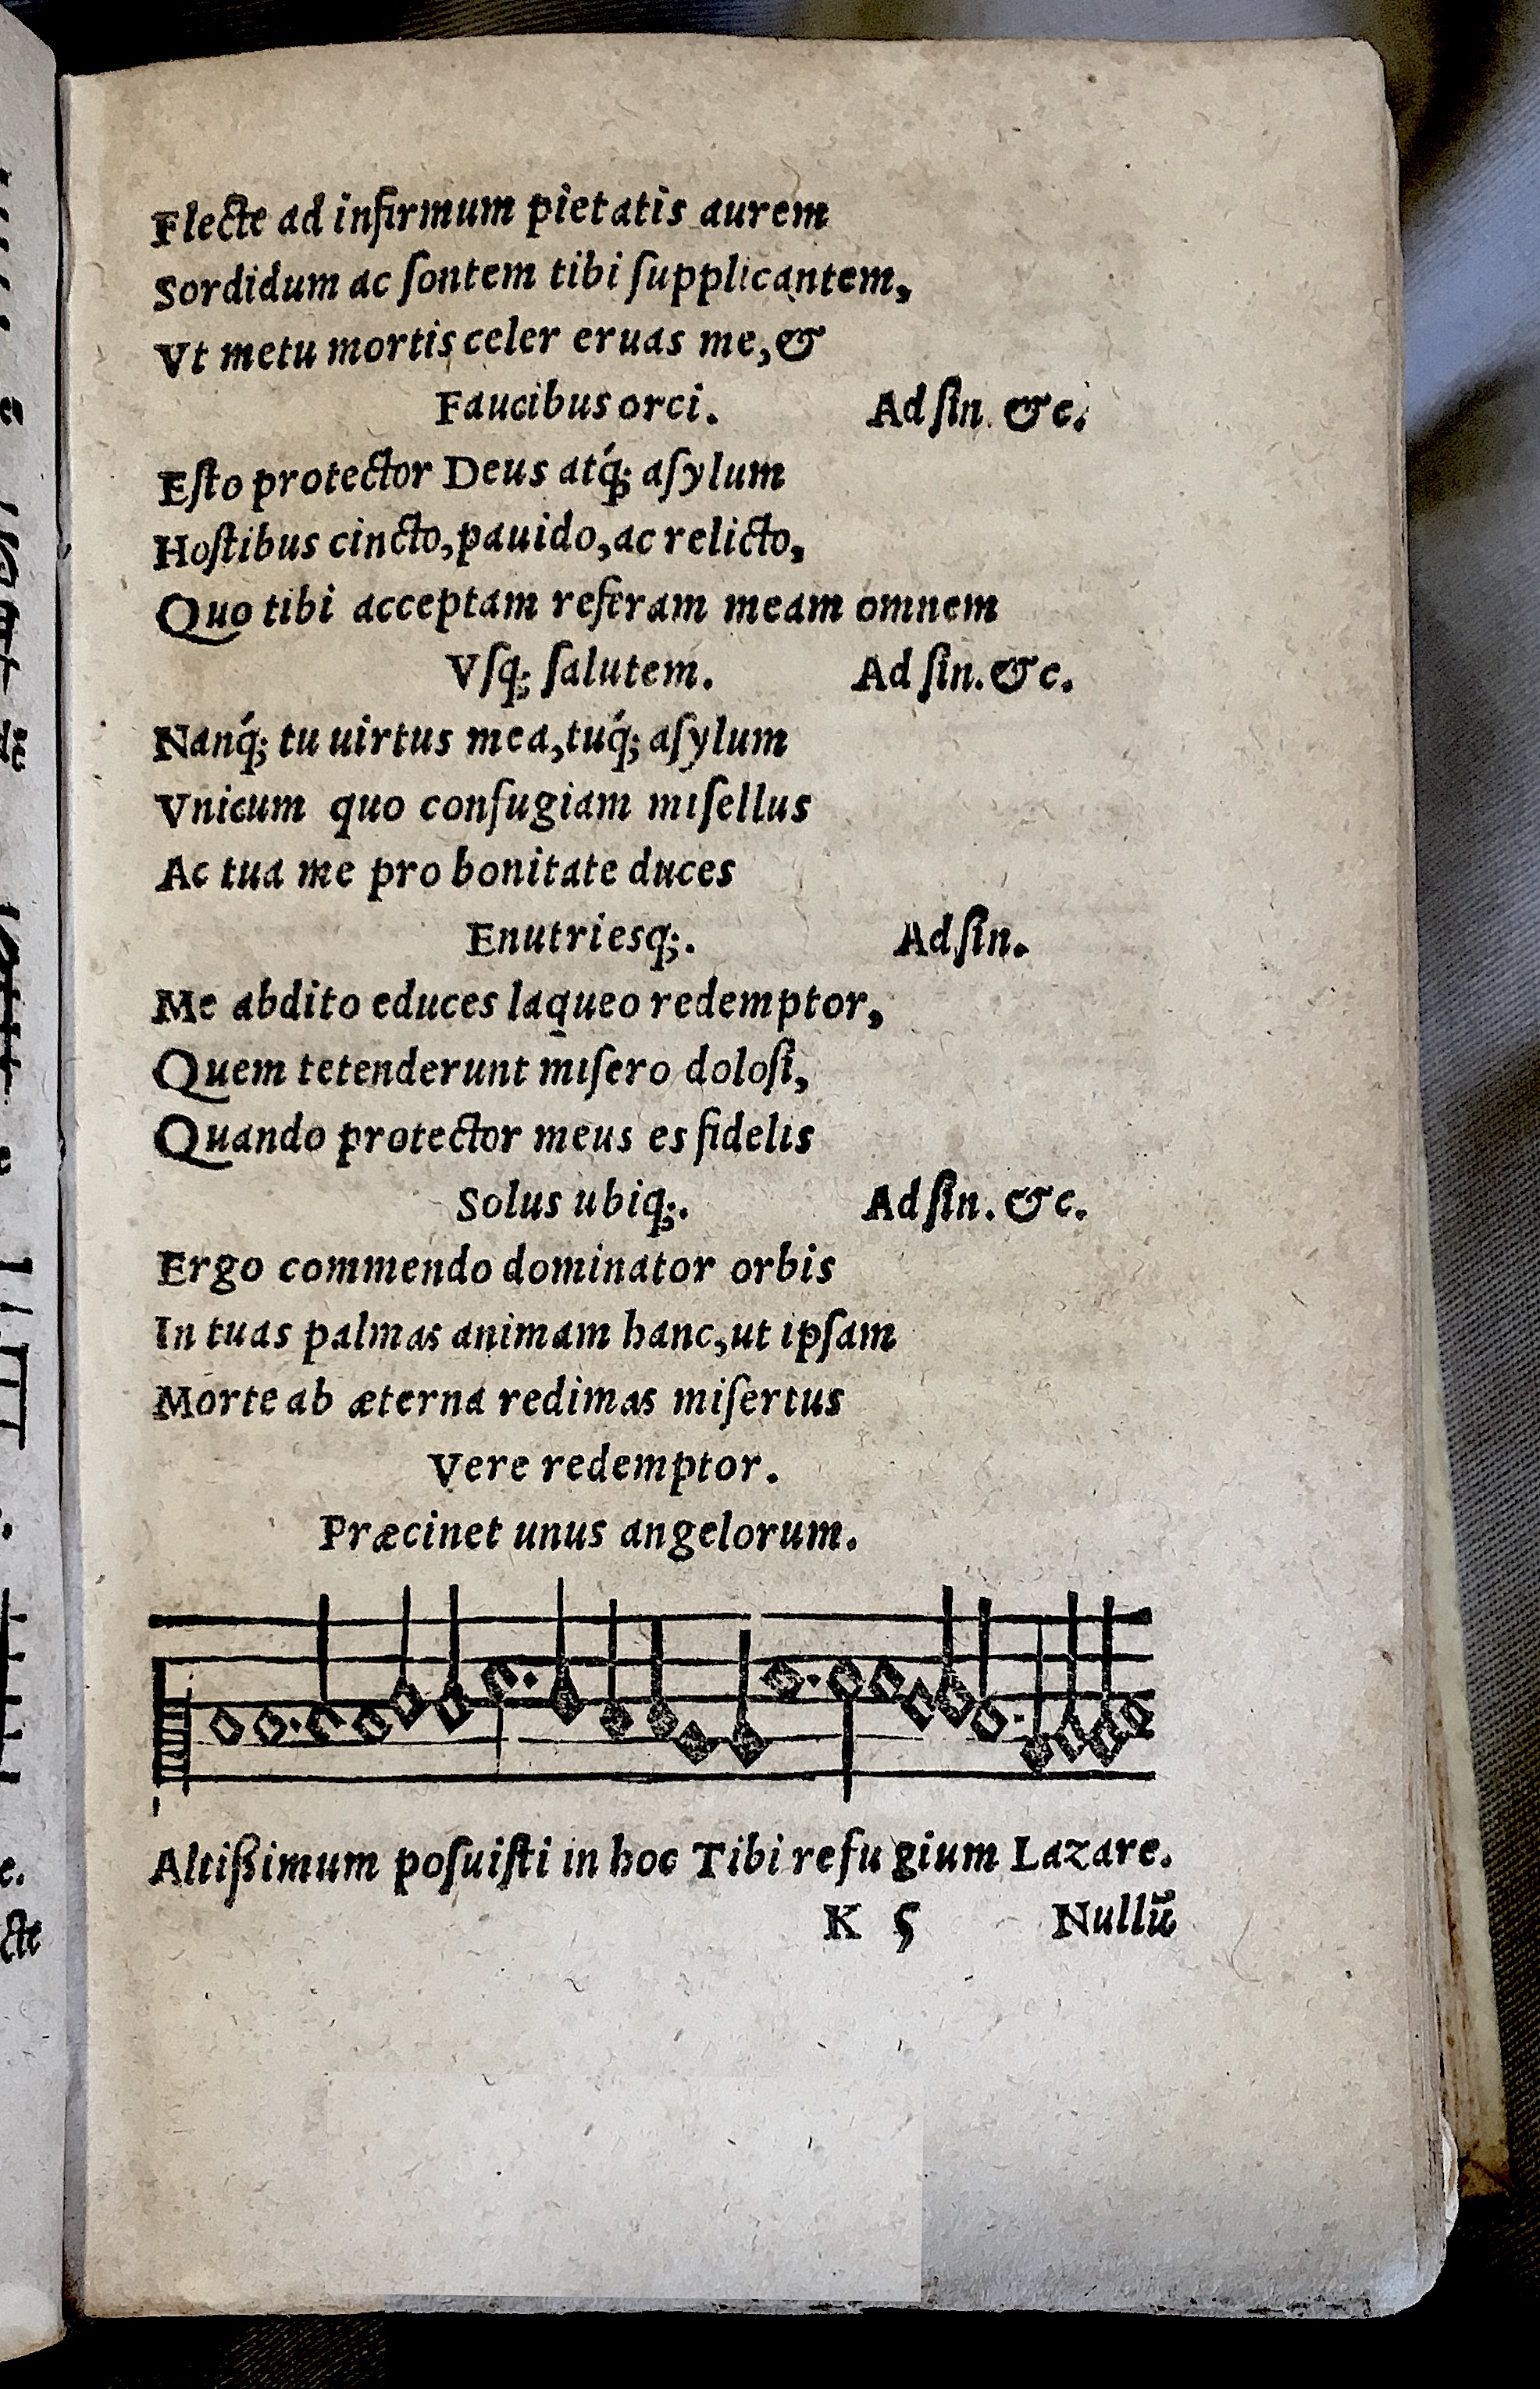 Flecte ad infirmum pietatis aurem
Sordidum ac ſontem tibi ſupplicantem,
Vt metu mortis celer eruas me, &
Faucibus orci. Ad ſin. &c.
Eſto protector Deus atq́; aſylum
Hoſtibus cincto, pauido, ac relicto,
Quo tibi acceptam referam meam omnem
Vſq; ſalutem. Ad ſin. &c.
Nanq́; tu uirtus mea, tuq́; aſylum
Vnicum quo confugiam miſellus
Ac tua me pro bonitate duces
Enutriesq;. Ad ſin.
Me abdito educes laqueo redemptor,
Quem tetenderunt miſero doloſi,
Quando protector meus es fidelis
Solus ubiq;. Ad ſin. &c.
Ergo commendo dominator orbis
In tuas palmas animam hanc, ut ipſam
Morte ab æterna redimas miſertus
Vere redemptor.
Præcinet unus angelorum.
Altiſſimum poſuiſti in hoc Tibi refu gium Lazare.
K 5 Nullū